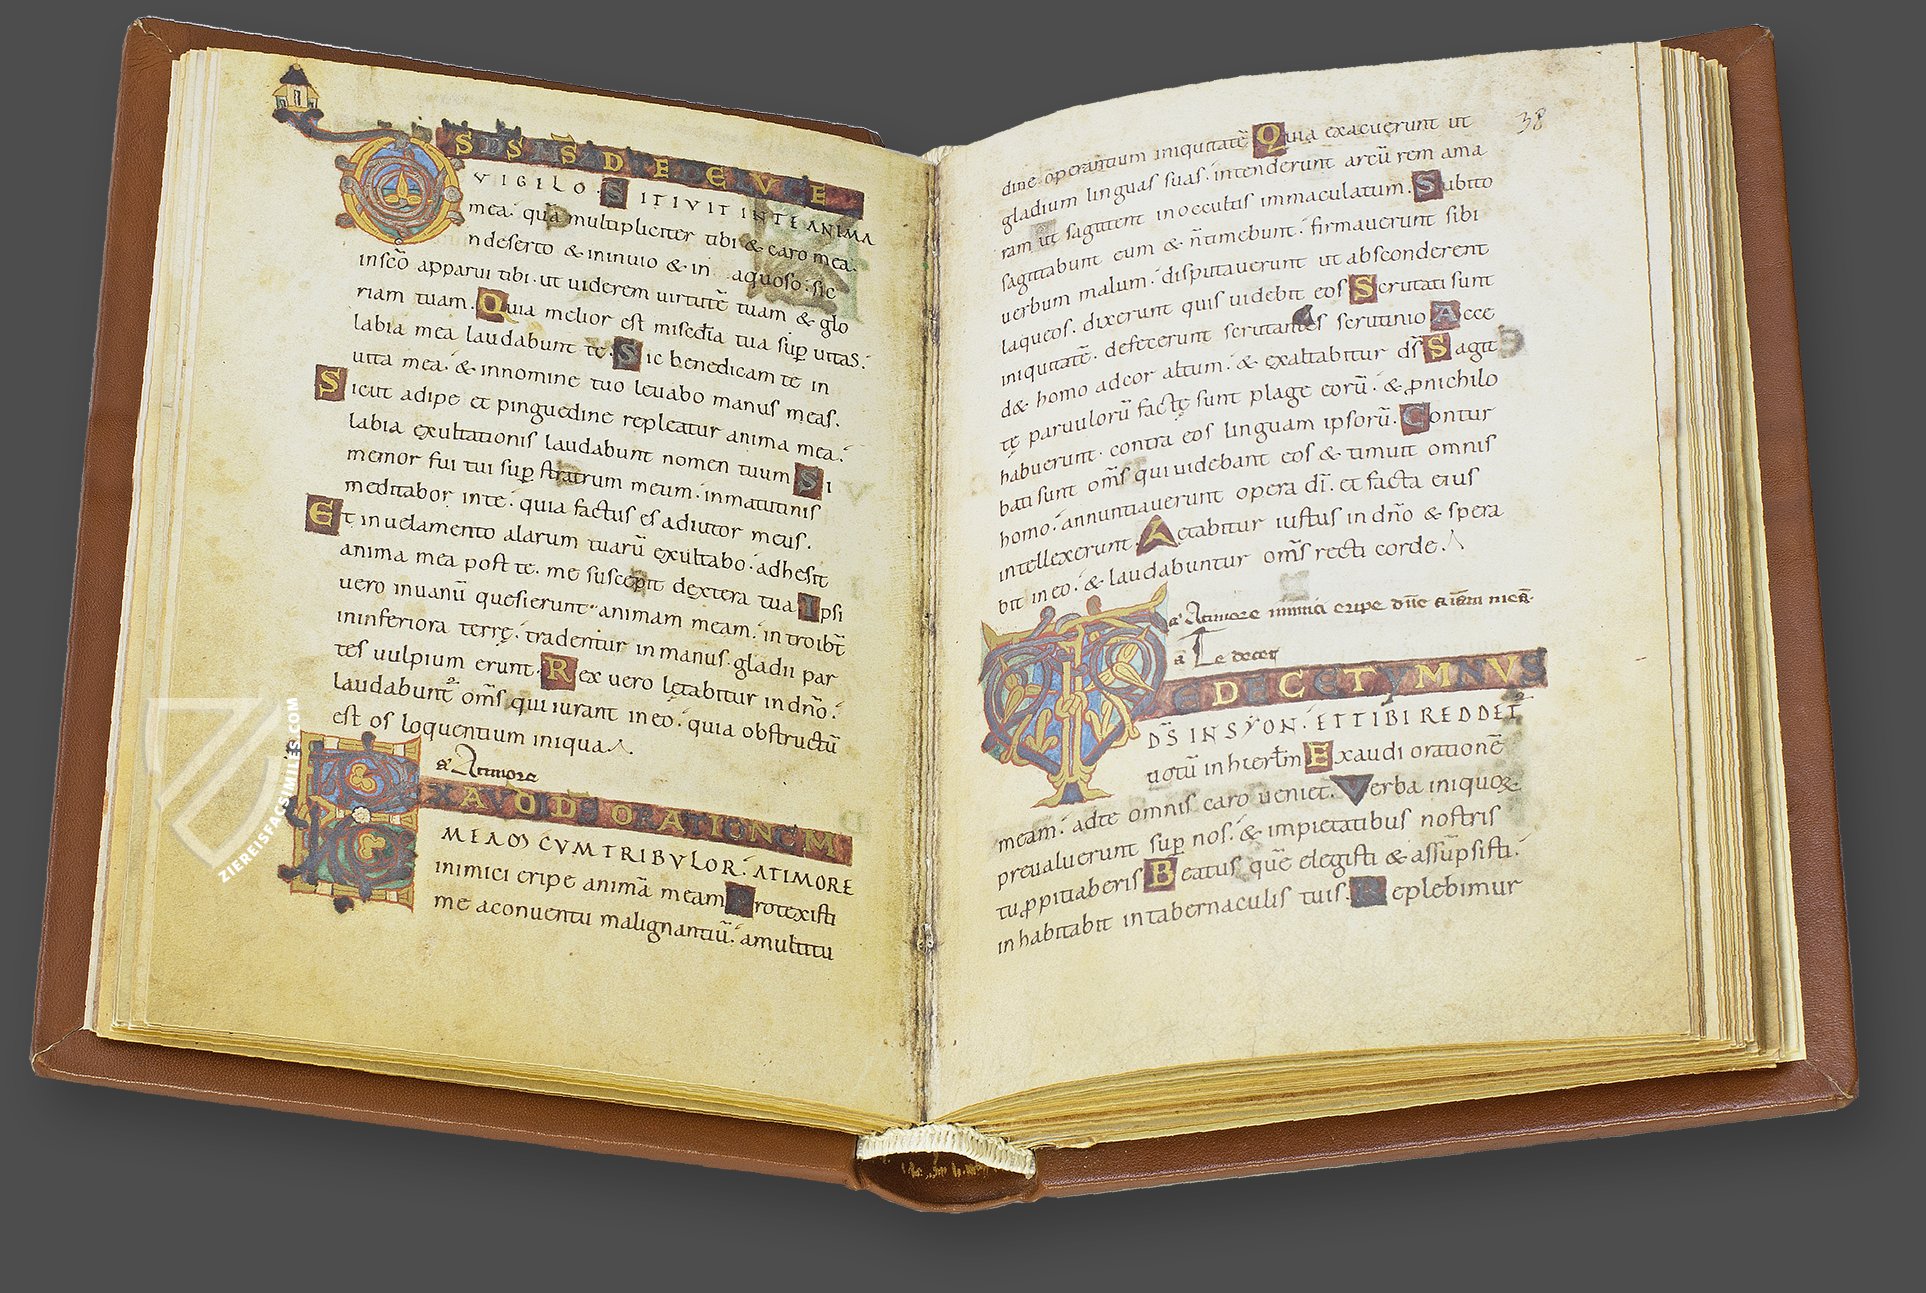 DS DS MS AD TE DE LVCE
VIGILO. SITIVIT INTE ANIMA
mea. quā multipliciter tibi & caro mea.
ndeserto & ininuio & in aquoso. sic
inscō apparui tibi. ut uiderem uirtutē tuam & glo
riam tuam. Quia melior est misedīa tua sup̱ uitas.
labia mea laudabunt te. Sic benedicam te in
uita mea. & innomine tuo leuabo manus meas.
Sicut adipe et pinguedine repleatur anima mea.
labia exultationis laudabunt nomen tuum Si
memor fui tui sup̱ stratum meum. inmatutinis
meditabor inte. quia factus es adiutor meus.
Et inuelamento alarum tuarū exultabo. adhesit
anima mea post te. me suscepit dextera tua Ipsi
uero inuanū quesierunt animam meam. introibt̄
ininferiora terrę. tradentur inmanus gladii par
tes uulpium erunt. Rex uero lętabitur indn̄o.
laudabunt̄ om̄s qui iurant ineo. quia obstructū
est os loquentium iniqua.
a Atimore
EXAVDI DS ORATIONEM
MEAM CVMTRIBVLOR. ATIMORE
inimici eripe animā meam Protexisti
me aconuentu malignantiū. amultitu
38
dine operantium iniquitatē Quia exacuerunt ut
gladium linguas suas. intenderunt arcū rem ama
ram ut sagittent inoccultis immaculatum. Subito
sagittabunt eum & n̄timebunt. firmauerunt sibi
uerbum malum. disputauerunt ut absconderent
laqueos. dixerunt quis uidebit eos Scrutati sunt
iniquitatē. defecerunt scrutantes scrutinio Acce
d& homo adcor altum. & exaltabitur ds̄ Sagit
tę paruulorū factę sunt plage eorū. & ꝓnichilo
habuerunt. contra eos linguam ipsorū. Contur
bati sunt om̄s qui uidebant eos & timuit omnis
homo. annuntiauerunt opera dī. et facta eius
intellexerunt. Lętabitur iustus in dn̄o & spera
bit in eo. & laudabuntur om̄s recti corde.
a Atimore inimici eripe dn̄e aīam meā.
a Te decet
TE DECET YMNVS
DS̄ IN SYON. ET TIBI REDDET
uotū in hierlm̄ Exaudi orationē
meam. adte omnis caro ueniet. Verba iniquoꝝ
preualuerunt sup̱ nos. & impietatibus nostris
tu ꝓpitiaberis Beatus quē elegisti & assūpsisti.
inhabitabit intabernaculis tuis. Replebimur
ZIEREISFACSIMILES.COM